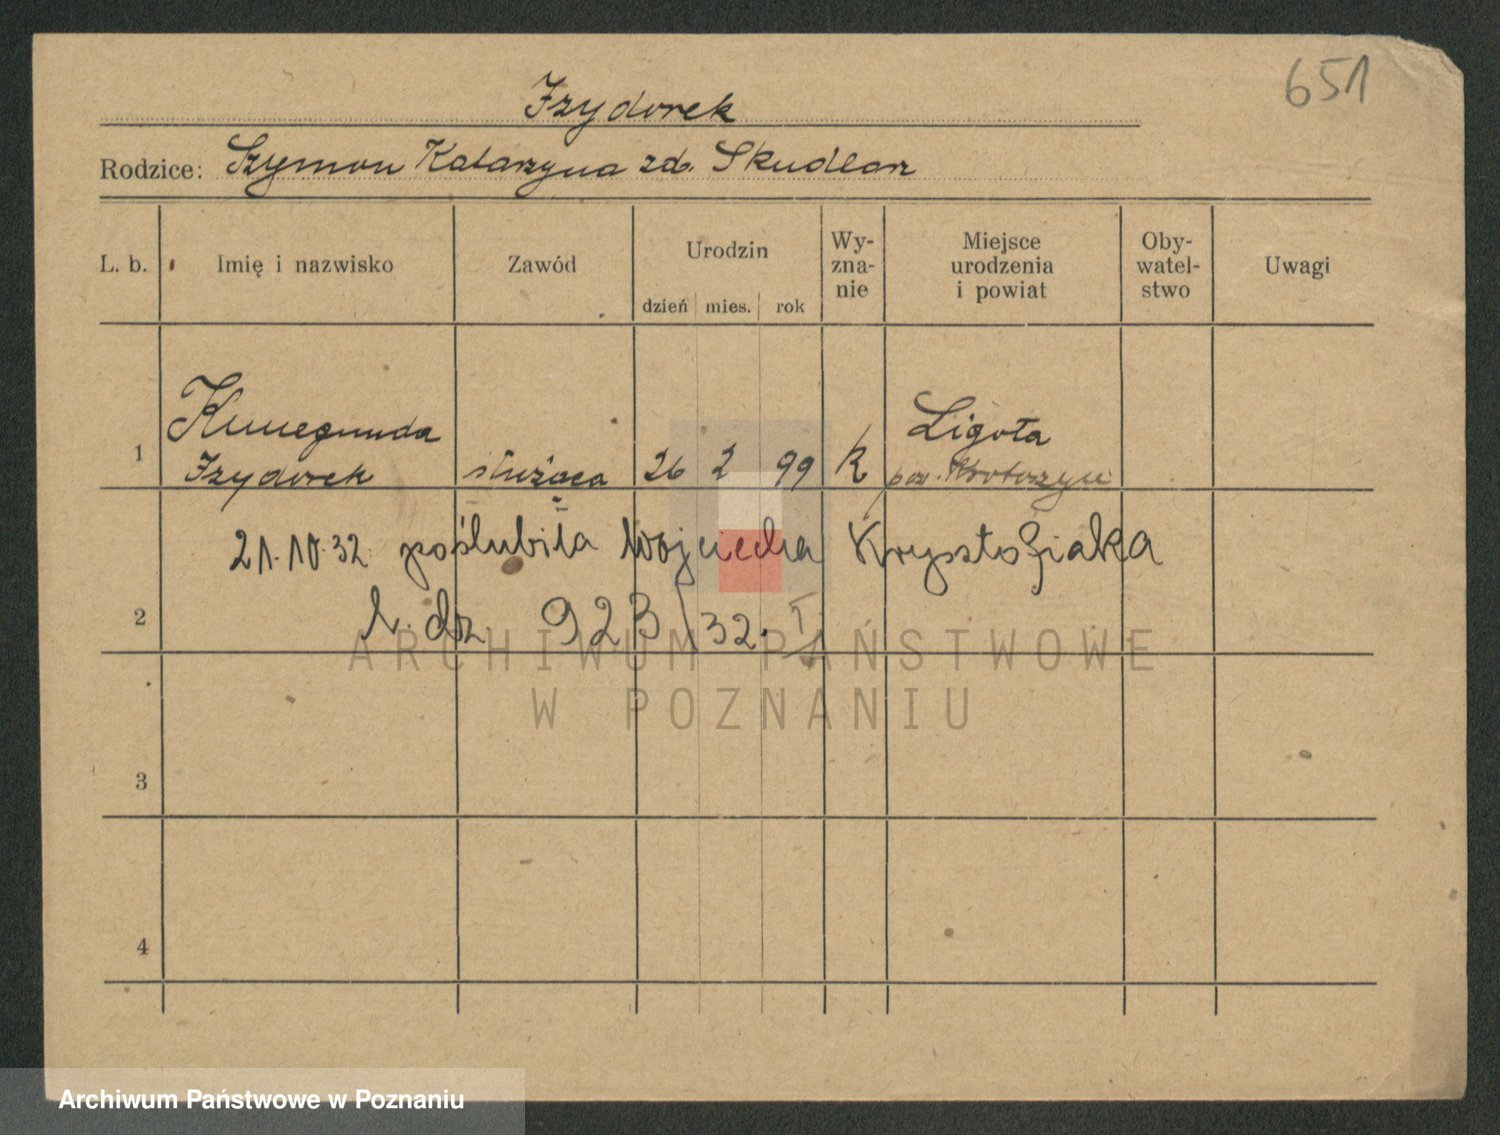 651
Izydorek
Rodzice: Szymon Katarzyna zd. Skudlarz
L. b. Imię i nazwisko Zawód Urodzin dzień mies. rok Wy-zna-nie Miejsce urodzenia i powiat Oby-watel-stwo Uwagi
1 Kunegunda Izydorek służąca 26 2 99 k Ligota pow. Krotoszyn
21.10.32 poślubiła Wojciecha Krysztofiaka
2 L. dz. 923/32. I
3
4
ARCHIWUM PAŃSTWOWE
W POZNANIU
Archiwum Państwowe w Poznaniu